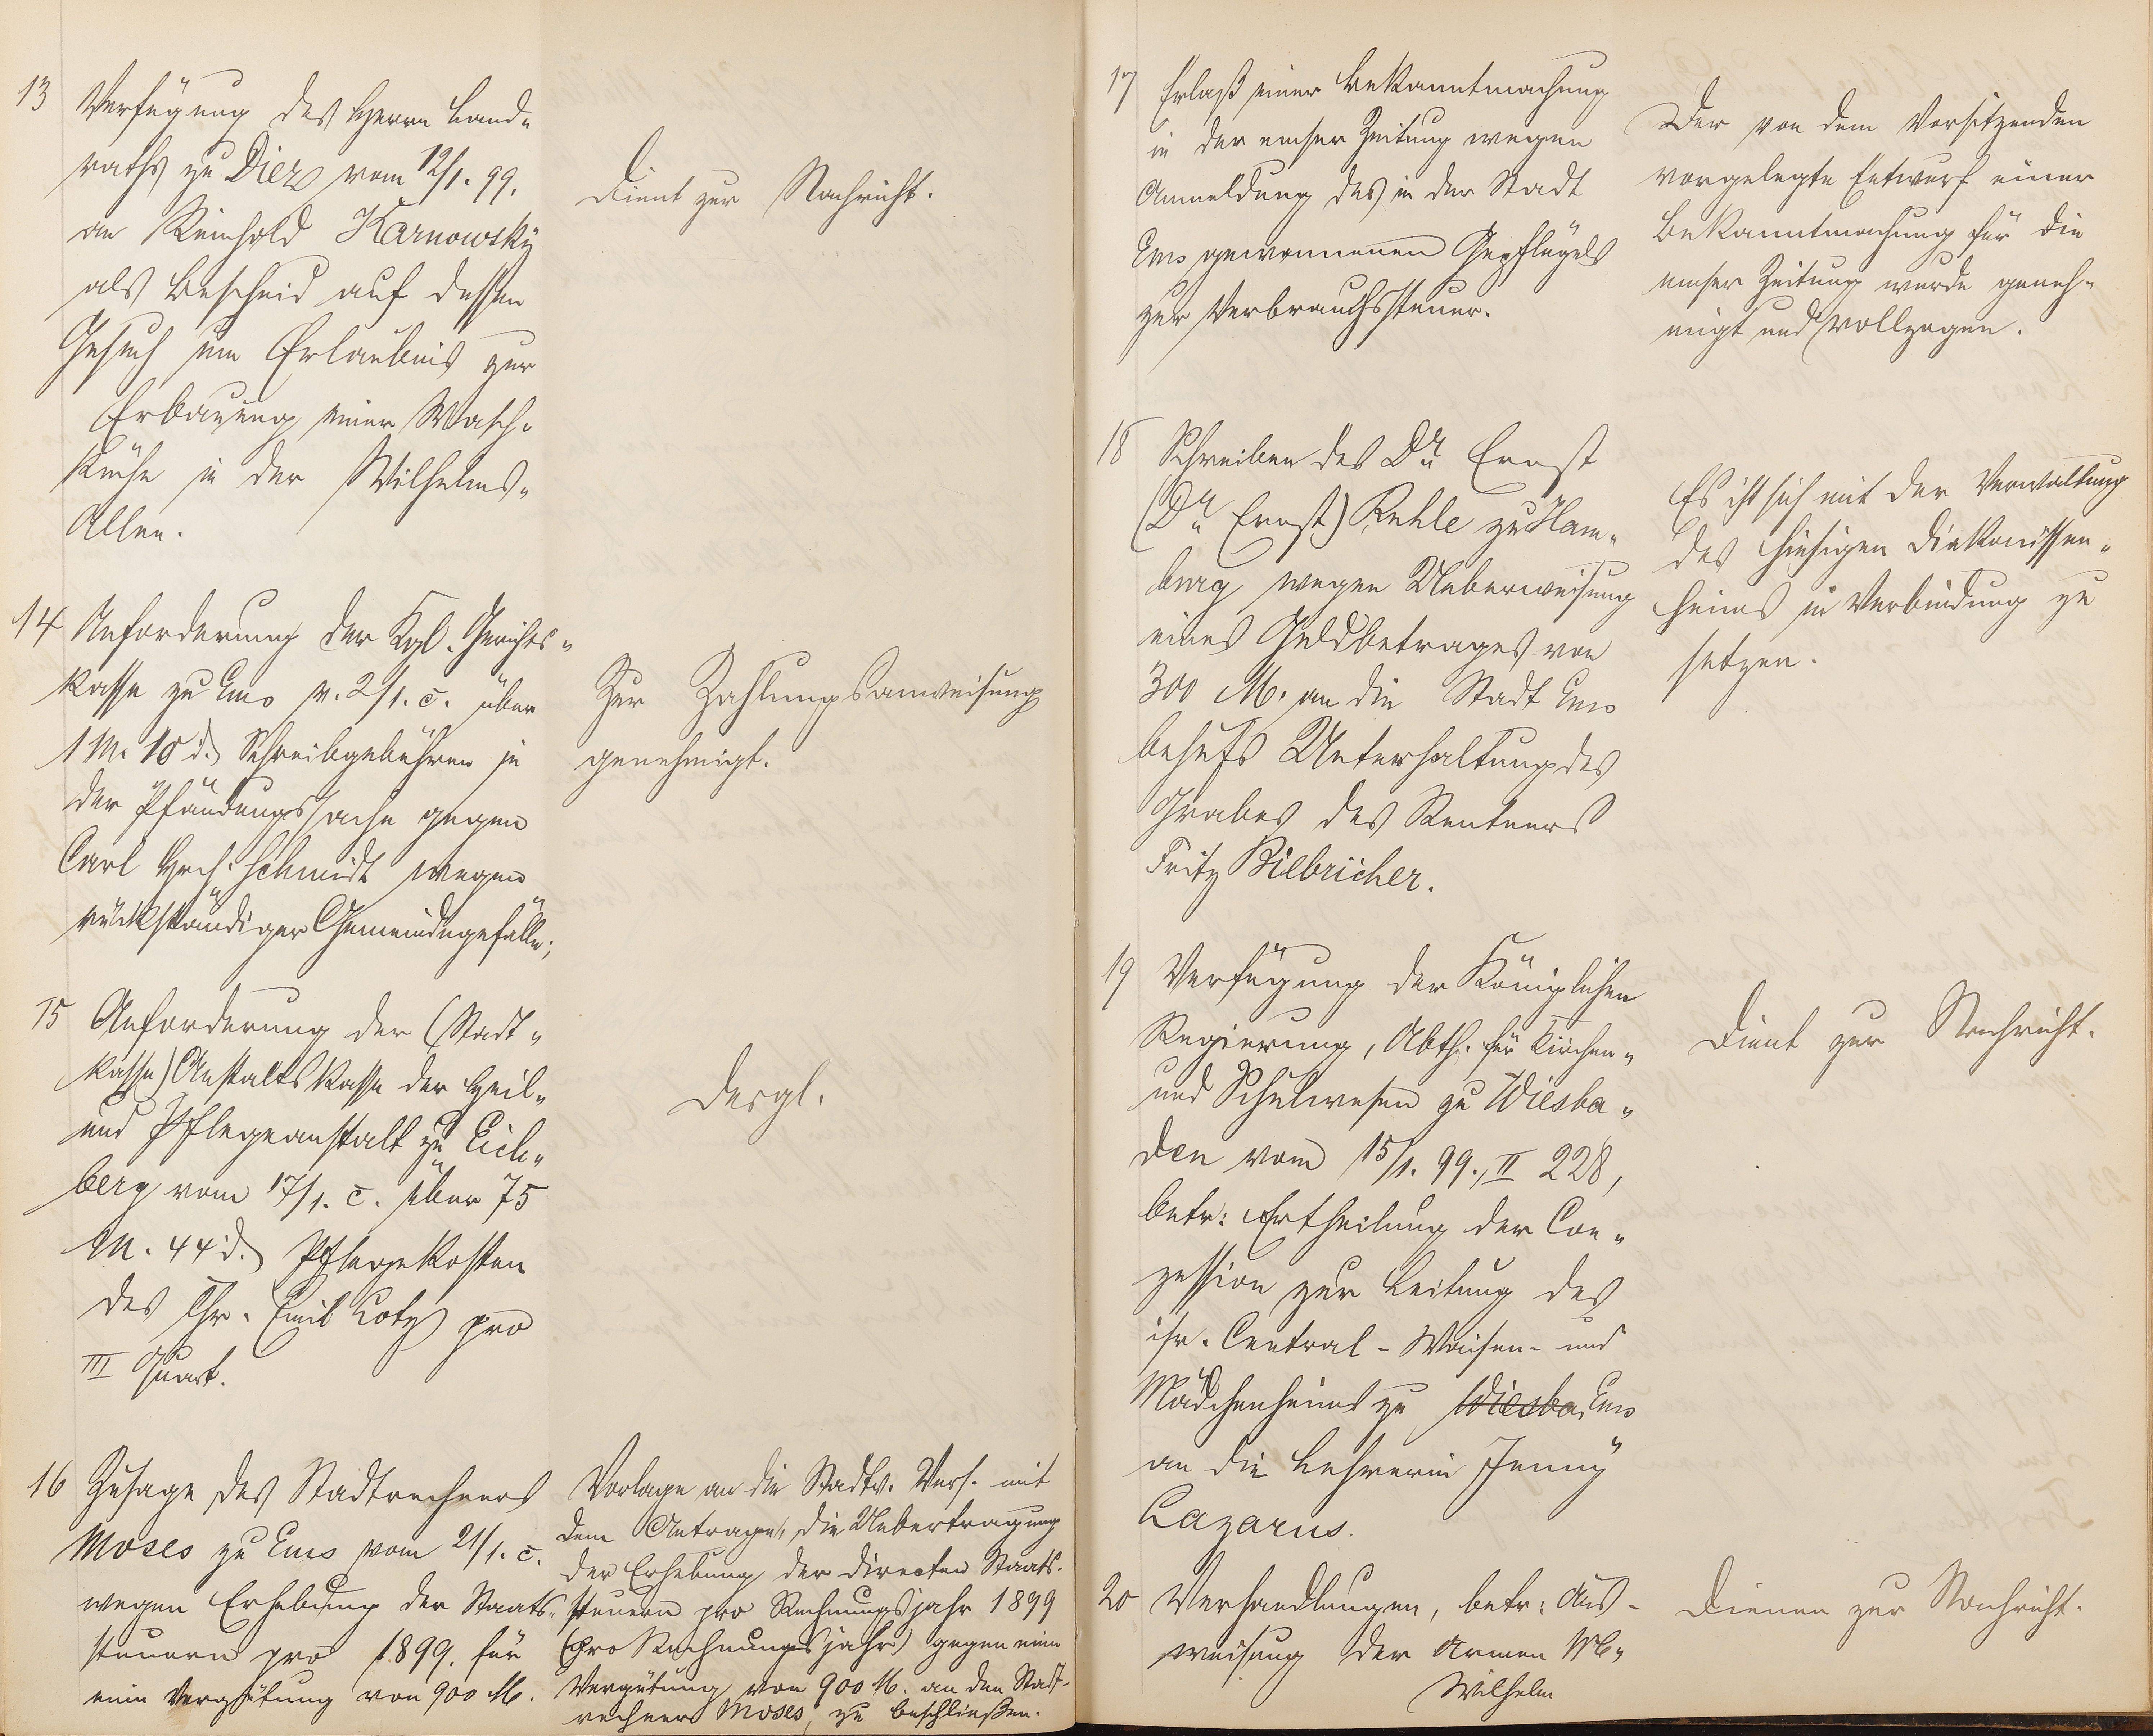 13 Verfügung des Herrn Land-
raths zu Diez vom 12/1. 99.
an Reinhold Karnowsky
als Bescheid auf dessen
Gesuch um Erlaubnis zur
Erbauung einer Wasch-
küche in der Wilhelms-
Allee.
Dient zur Nachricht.
14 Anforderung der Kgl. Gerichts-
kasse zu Ems v. 2/1. c. über
1 M. 10 d. Schreibgebühren in
der Pfändungssache gegen
Carl Hrch. Schmidt wegen
rückständiger Gemeindegefälle;
Zur Zahlungsanweisung
genehmigt.
15 Anforderung der (Stadt-
kasse) Anstaltskasse der Heil-
und Pflegeanstalt zu Eich-
berg vom 17/1. c. über 75
M. 44 d. Pflegekosten
des Chr. Emil Lotz pro
III Quart.
Desgl.
16 Zusage des Stadtrechners
Moses zu Ems vom 21/1. c.
wegen Erhebung der Staats-
steuern pro 1899. für
eine Vergütung von 900 M.
Vorlage an die Stadtv. Vers. mit
dem Antrage, die Uebertragung
der Erhebung der directen Staats-
steuern pro Rechnungsjahr 1899
(pro Rechnungsjahr) gegen eine
Vergütung von 900 M. an den Stadt-
rechner Moses zu beschließen.
17 Erlaß einer Bekanntmachung
in der Emser Zeitung wegen
Anmeldung des in der Stadt
Ems gewonnenen Gepflügels
zur Verbrauchssteuer.
Der von dem Vorsitzenden
vorgelegte Entwurf einer
Bekanntmachung für die
Emser Zeitung wurde geneh-
migt und vollzogen.
18 Schreiben des Dr. Ernst
(Dr. Ernst) Rehle zu Ham-
burg wegen Ueberweisung
eines Geldbetrages von
300 M. an die Stadt Ems
behufs Unterhaltung des
Grabes des Rentners
Fritz Biebricher.
Es ist sich mit der Verwaltung
des hiesigen Diakonissen-
heims in Verbindung zu
setzen.
19 Verfügung der Königlichen
Regierung, Abth. für Kirchen-
und Schulwesen zu Wiesba-
den vom 15/1. 99., II 228,
betr: Ertheilung der Con-
zession zur Leitung des
isr. Central-Waisen- und
Mädchenheims zu Wiesba, Ems
an die Lehrerin Jenny
Lazarus.
Dient zur Nachricht.
20 Verhandlungen, betr: Aus-
weisung der Armen
Wilhelm
Dienen zur Nachricht.